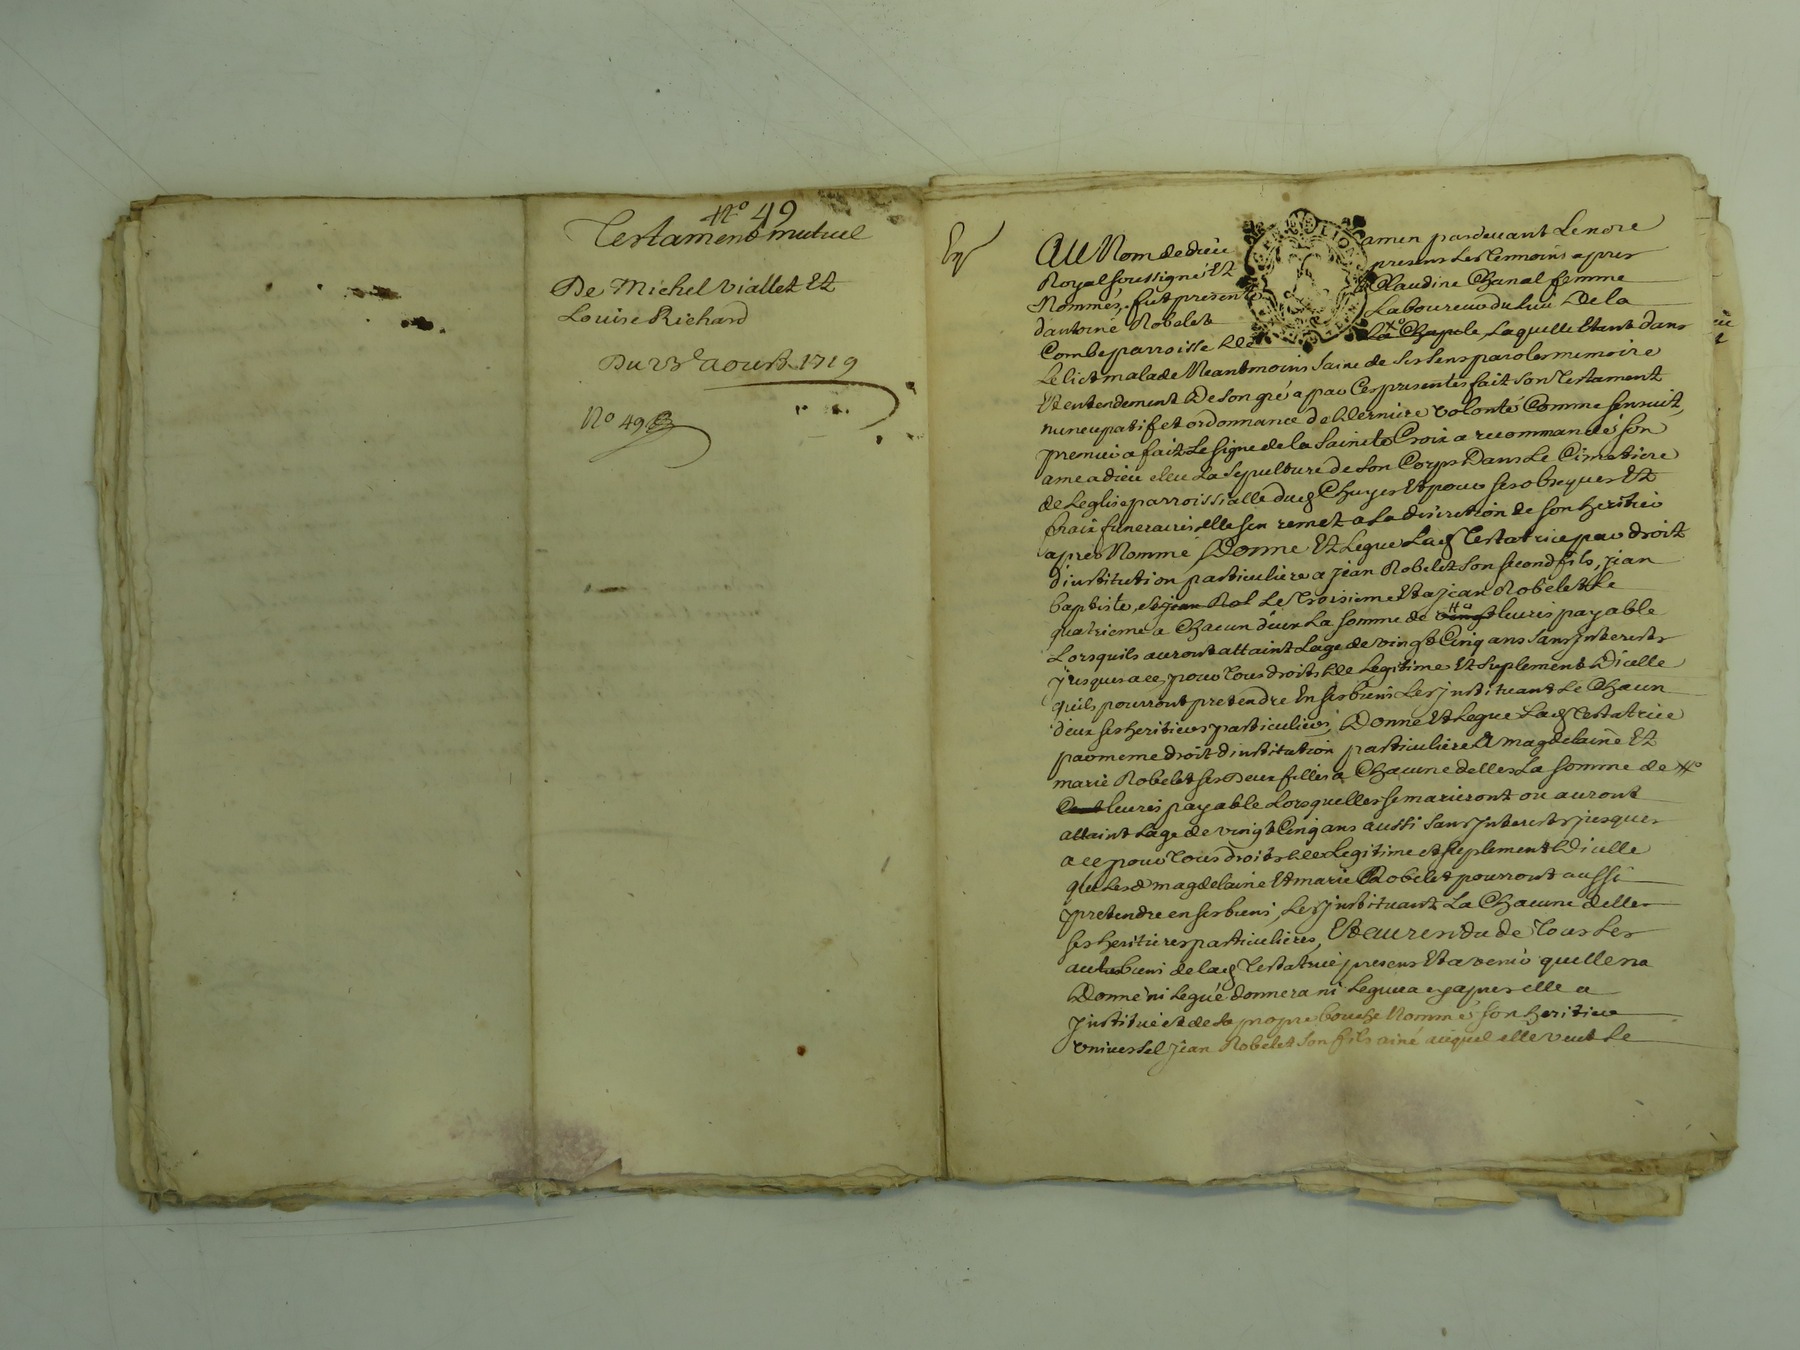 No 49
Testament mutuel
De Michel Viallet Et
Louise Richard
Du 23e aoust 1719
No 49
Au Nom de dieu amen pardevant Le nore
Royal soussigné Et presens Les Temmoins apres
Nommés, fut presente Claudine Chanal femme
dantoine Robelet Laboureur du lieu De la
Combe parroisse de La Chapele, Laquelle Etant dans
Le lict malade Neantmoins saine de ses sens paroles memoire
Et entendement De son gré a par Ces presentes fait son Testament
nuncupatif et ordonnance de derniere volonté Comme sensuit,
premier a fait Le signe de la sainte Croix a recommandé son
ame a dieu eleu La sepulture de son Corps Dans Le Cimetiere
de Leglise parroissialle dud Chuyes Et pour ses obseques Et
fraix funeraires elle sen remet a La discretion de son heritier
apres Nommé Donne Et Legue Lad Testatrice par droit
dinstitution particuliere a Jean Robelet son second fils, Jean
baptiste, et jean Rob Le Troisieme Et a jean Robelet Le
quatrieme a Chacun deux La somme de vingt livres payable
Lorsquils auront attaint Lage de vingt Cinq ans sans jnterests
jusques a ce, pour Tous droits de Legitime Et suplement Dicelle
quils pourront pretendre En ses biens Les jnstituant Le Chacun
deux ses heritiers particuliers, Donne Et Legue Lad Testatrice
par meme droit dinstitution particuliere A magdelaine Et
marie Robelet ses Deux filles a Chacune delles La somme de
Cent livres payable Lorsquelles se marieront ou auront
attaint Lage de vingt Cinq ans aussi sans jnterests jusques
a ce pour Tous droits de Legitime et suplement Dicelle
que Lesd magdelaine Et marie Robelet pourront aussi
pretendre en ses biens, Les jnstituant La Chacune delles
ses heritieres particulieres, Et au residu de Tous Les
autres biens de lad Testatrice presens Et avenir quelle na
Donné ni Legué donnera ni Leguera cy apres elle a
jnstitué et de sa propre bouche Nommé son heritier
Universel Jean Robelet son fils ainé auquel elle veut Le